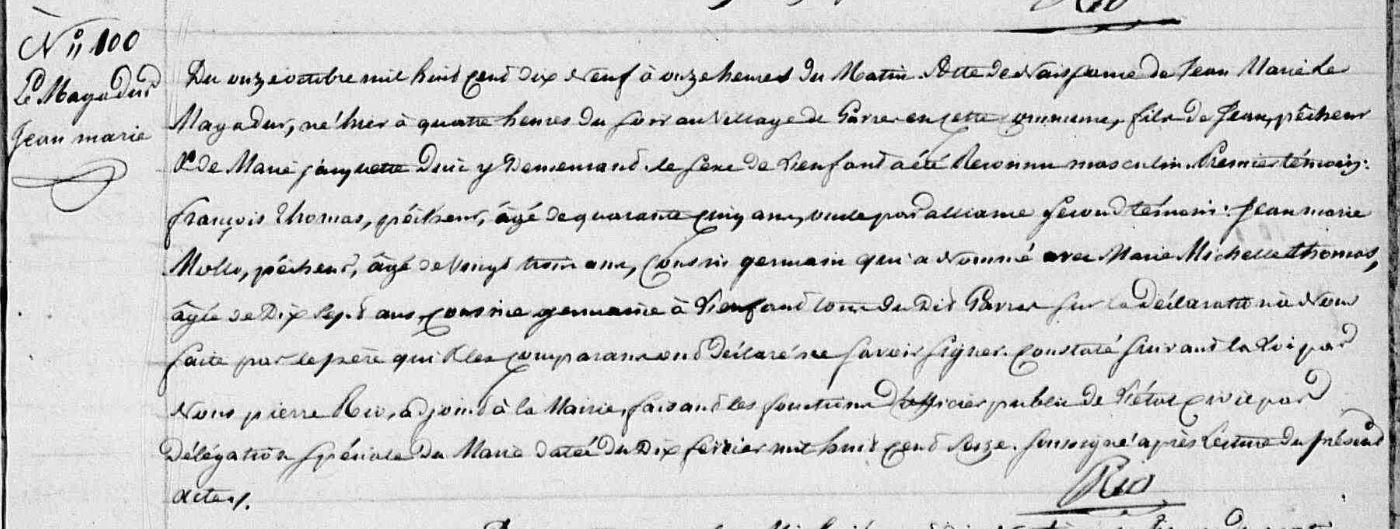 Rio
N° 100
Le Magadur
Jean marie
Du onze octobre mil huit cent dix Neuf à onze heures du Matin. Acte de Naissance de Jean Marie Le
Magadur, né hier à quatre heures du soir au village de en cette commune, fils de Jean, pêcheur
& de Marie jacquette y Demeurant. le sexe de L'enfant a été Reconnu masculin. Premier témoin:
françois Thomas, pêcheur, âgé de quarante cinq ans, oncle par alliance second témoin: Jean marie
Mollo, pêcheur, âgé de vingt trois ans, Cousin germain qui a Nommé avec Marie Michelle thomas,
âgée de Dix sept ans, cousine germaine à L'enfant tous du Dit sur la Déclaration à Nous
faite par le père qui & les comparans ont Déclaré ne savoir signer. Constaté suivant la Loi par
Nous pierre Rio, adjoint à la Mairie, faisant les fonctions D'officier public de L'état civil par
Délégation spéciale Du Maire datée du Dix février mil huit cent seize. soussigné après Lecture du présent
acte.
Rio